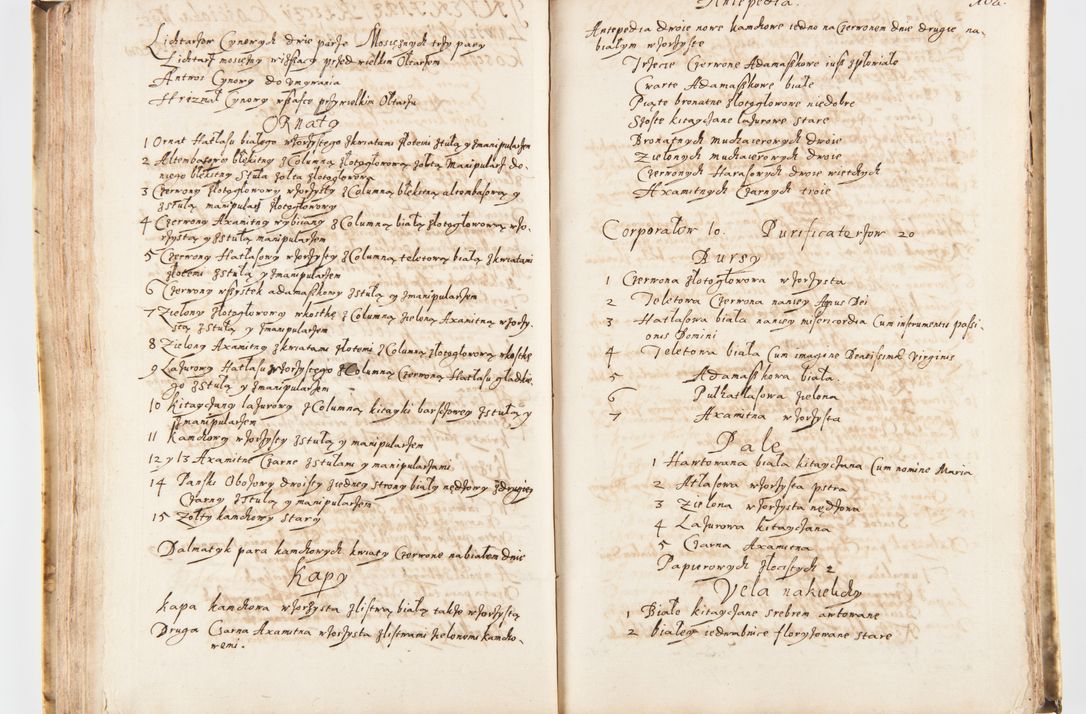 Lichtarzow Cynowych dwie parze Mosięznych trzy pary
Lichtarz mosiężny wiszący przed wielkim Ołtarzem
Antwos Cynowy do umywania
Hriznał Cynowy w szafce przy wielkim Ołtarzu
ORnaty
1 Ornat Hatłasu białego wzorzystego z kwiatami złotemi z stułą y z manipularzem
2 Altembasowy błękitny z Columną złotogłowową żółtą Manipularz do
niego błękitny Stuła żołta złotogłowowa
3 Czerwony złotogłowowy wzorzysty z Columną błękitną altembasową y
z stułą manipularz złotogłowowy
4 Czerwony Axamitny wybijany z Columną białą złotogłowową wzo-
rzystą y z stułą manipularzem
5 Czerwony Hatłasowy wzorzysty z Columną teletową białą z kwiatami
złotemi z stułą y z manipularzem
6 Czerwony wszystek adamaszkowy z stułą y z manipularzem
7 Zielony złotogłowowy w kostkę z Columną zieloną Axamitną wzorzy-
stą z stułą y z manipularzem
8 Zielony Axamitny z kwiatami złotemi z Columną złotogłowową w kostkę
9 Lazurowy Hatłasu wzorzystego z Columną Czerwoną Hatłasu gładkie-
go z stułą y z manipularzem
10 Kitayczany lazurowy z Columną kitayki barszczowey z stułą y
z manipularzem
11 Kamchowy wzorzysty z stułą y manipularzem
12 y 13 Axamitne Czarne z stułami y manipularzami
14 Pański Obozowy dwoisty z iedney strony biały nędzowy z drugiey
Czarny z stułą y manipularzem
15 Zołty kamchowy stary
Dalmatyk para kamchowych kwiaty Czerwone na białem dnie
Kapy
Kapa kamchowa wzorzysta z listwą białą także wzorzystą
Druga Czarna Axamitna wzorzysta z listwami zielonemi kamcho-
wemi.
Antepedia.
Antepedia dwoie nowe kamchowe iedno na Czerwonem dnie drugie na
białym wzorzyste
Trzecie Czerwone Adamaszkowe iusz zpłoniałe
Czwarte Adamaszkowe białe
Piąte brunatne złotogłowowe niedobre
Szoste kitayczane lazurowe stare
Brunatnych muchaierowych dwoie
Zielonych muchaierowych dwoie
Czerwonych Harasowych dwoie wietchych
Axamitnych Czarnych troie
Corporałow 10. Purificaterzow 20
Bursy
1 Czerwona złotogłowowa wzorzysta
2 Teletowa Czerwona na niey Agnus Dei
3 Hatłasowa biała na niey misericordia Cum instrumentis passi-
onis Domini
4 Teletowa biała Cum imagine Beatissimæ Virginis
5 Adamaszkowa biała.
6 Pułhatłasowa zielona
7 Axamitna wzorzysta
Pale
1 Hawtowana biała kitayczana Cum nomine Maria
2 Atłasowa wzorzysta pstra
3 Zielona wzorzysta nędzowa
4 Lazurowa kitayczana
5 Czarna Axamitna
Papierowych złocistych 2
Vela na kielichy
1 Białe kitayczane srebrem awtowane
2 Białey iedwabnice floryzowane stare